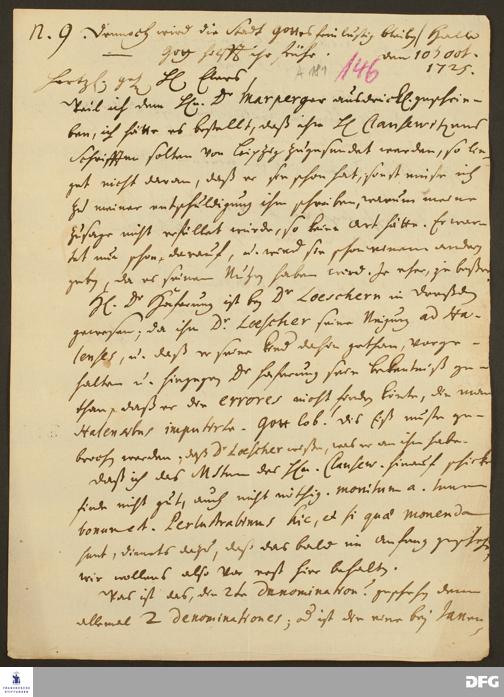 n. 9 Dennoch wird die Stadt Gottes fein lustig bleiben / Halle
Gott hilfft ihr frühe. den 10 oct.
A 181 146 1725.
Hertzl. gel. H. Elers,
Weil ich dem Hn. Dr Marperger ausdrückl. geschrie-
ben, ich hätte es bestellt, daß ihm H. Clausewitzens
Schrifften solten von Leipzig zugesendet werden, so lie-
get nicht daran, daß er sie schon hat; sonst müste ich
zu meiner entschuldigung ihm schreiben, warum meine
zusage nicht erfüllet würde, so keine art hätte. Er war-
tet nun schon darauf, u. wird sie schon einem andern
geben, da es seinen Nutzen haben wird. Je eher, je besser.
H. Dr Hassenung ist bey Dr Loeschern in Dresden
gewesen; da ihm Dr Loescher seine Neigung ad Ha-
lenses, u. daß er seine Kind dahin gethan, vorge-
halten u. hingegen Dr sein bekentniß ge-
than, daß er die errores nicht finden könte, die man
Halensibus imputirte. Gott lob. dis Eiß muste ge-
brochen werden; daß Dr Loescher wisse, was er an ihm habe.
Daß ich das MStum des Hn. Clausew. hinauf schicke
finde nicht gut, auch nicht nöthig. monitum a. tuum
bonum est. Perlustrabimus hic, et si quae monenda
sunt, dienets dazu, daß das bald im anfang geschehe,
wir wollens also vor erst hier behalten.
Was ist das, die 2te Denomination? geschehen denn
allemal 2 denominationes; od ist die eine bey
FRANCKESCHE STIFTUNGEN
DFG